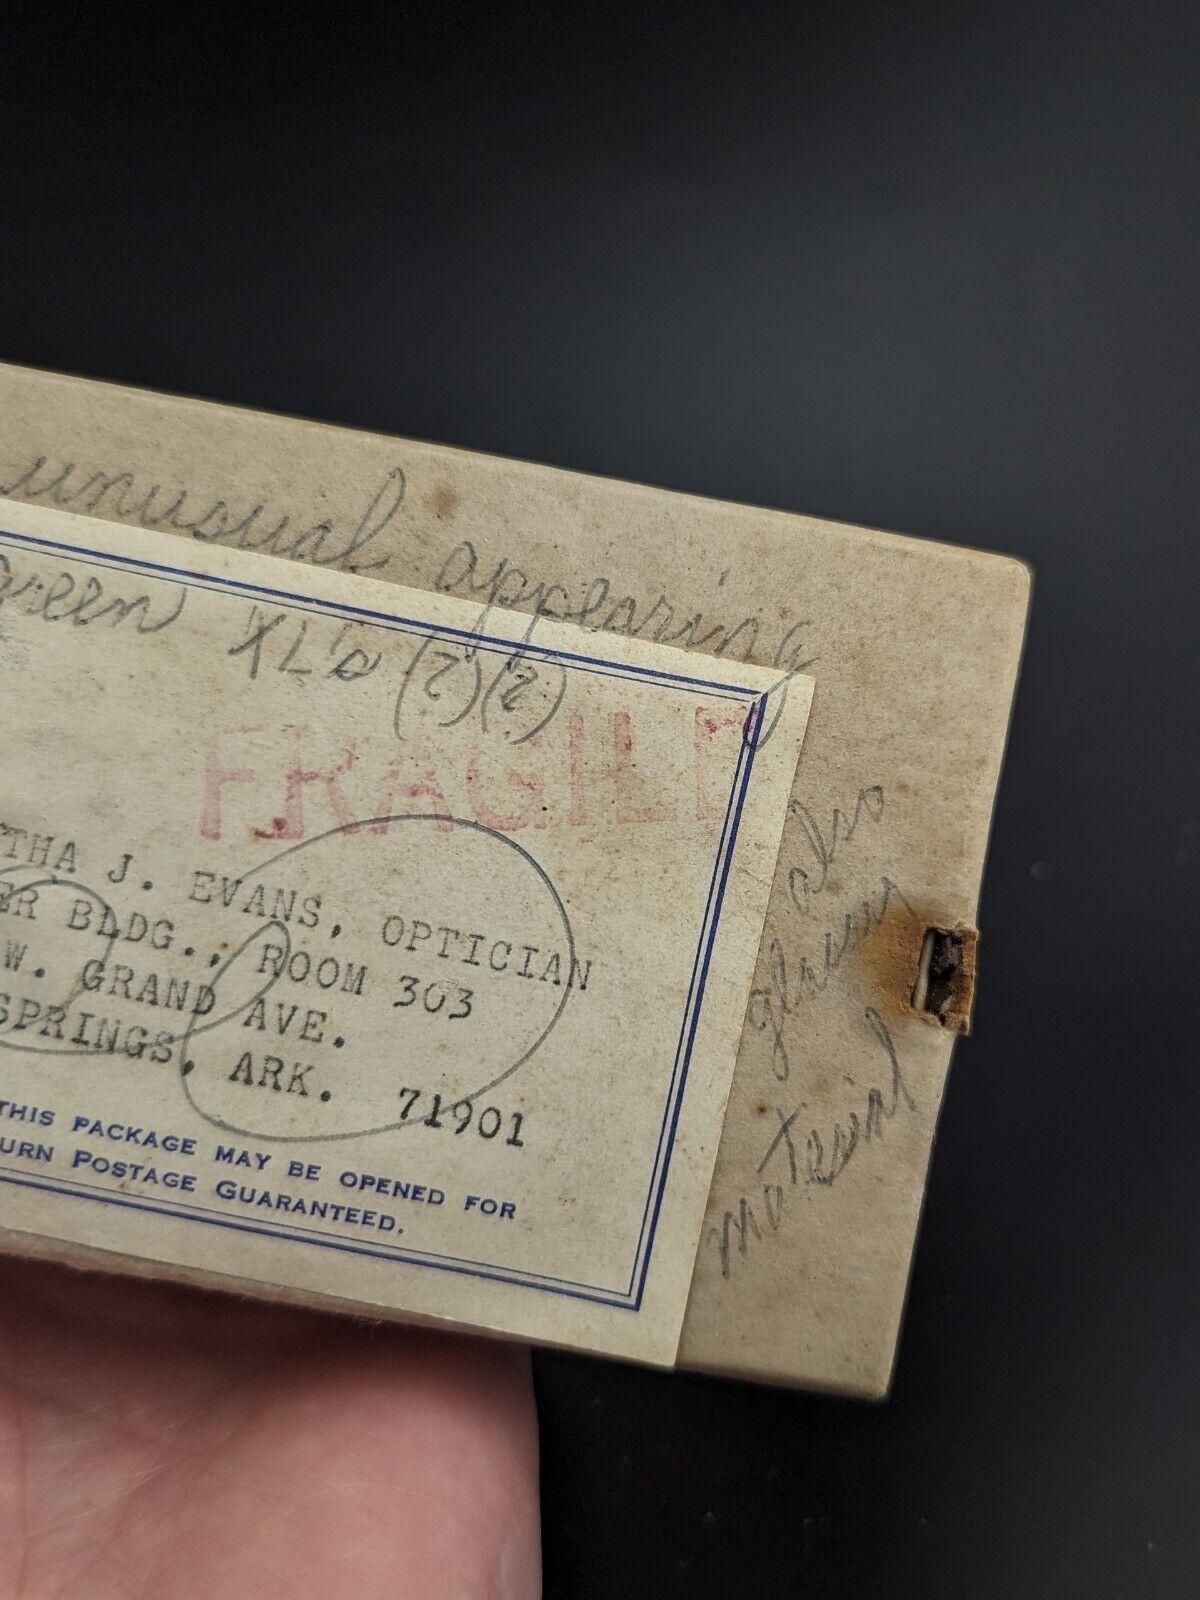 unusual appearing
green XL's (?)(?)
FRAGILE
THA J. EVANS, OPTICIAN
ER BLDG., ROOM 303
W. GRAND AVE.
SPRINGS, ARK. 71901
THIS PACKAGE MAY BE OPENED FOR
URN POSTAGE GUARANTEED.
also
glassy
material